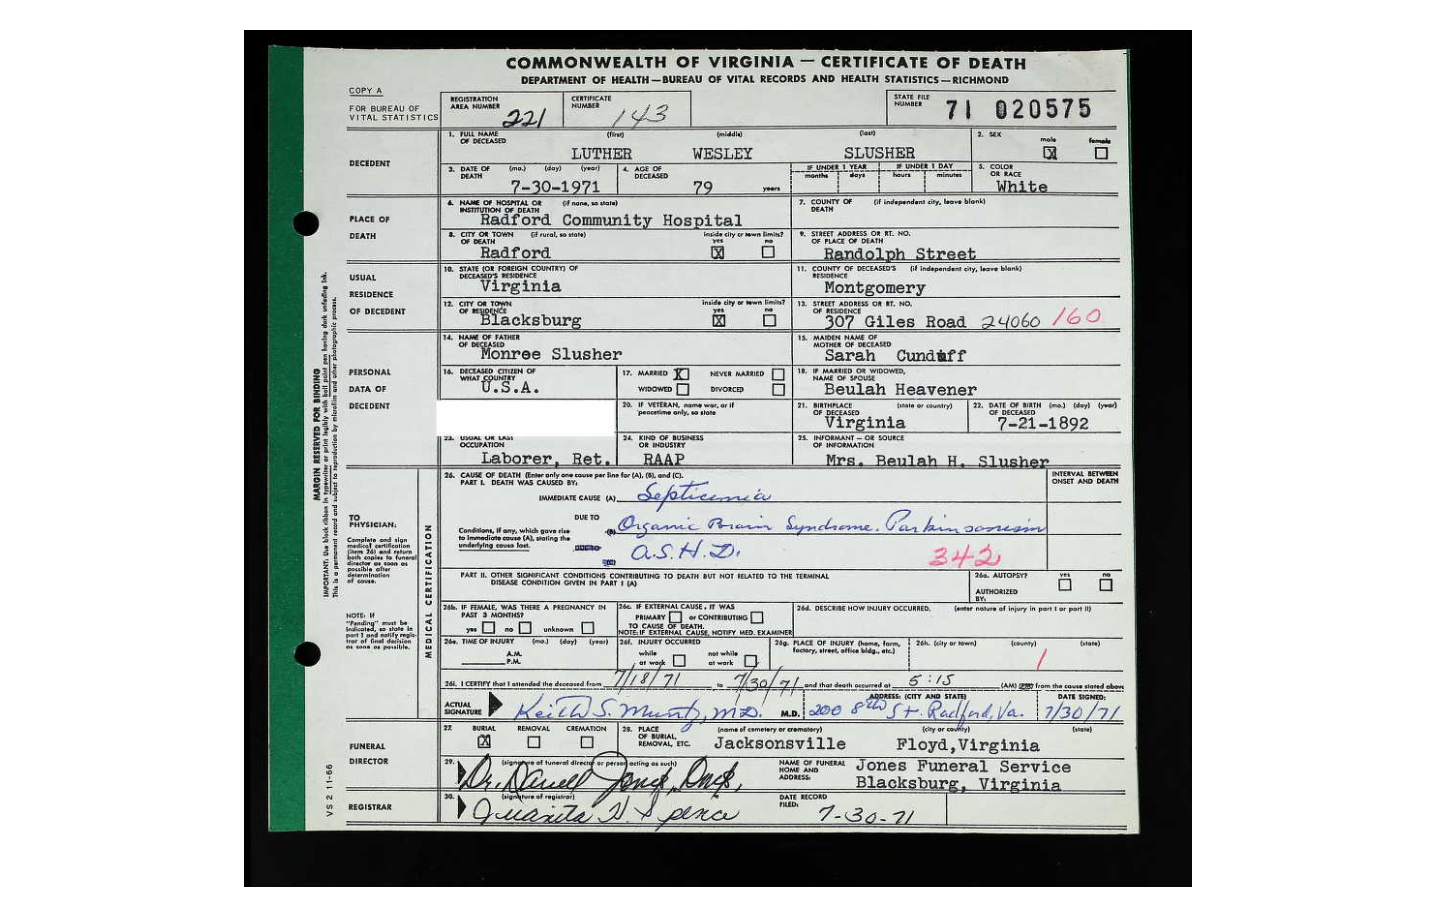 COMMONWEALTH OF VIRGINIA — CERTIFICATE OF DEATH
DEPARTMENT OF HEALTH—BUREAU OF VITAL RECORDS AND HEALTH STATISTICS—RICHMOND
COPY A
FOR BUREAU OF VITAL STATISTICS
REGISTRATION AREA NUMBER 221
CERTIFICATE NUMBER 143
STATE FILE NUMBER 71 020575
DECEDENT
1. FULL NAME OF DECEASED (first) (middle) (last)
LUTHER WESLEY SLUSHER
2. SEX male X female
3. DATE OF DEATH (mo.) (day) (year) 7-30-1971
4. AGE OF DECEASED 79 years
IF UNDER 1 YEAR months days
IF UNDER 1 DAY hours minutes
5. COLOR OR RACE White
PLACE OF DEATH
6. NAME OF HOSPITAL OR INSTITUTION OF DEATH (if none, so state)
Radford Community Hospital
7. COUNTY OF DEATH (if independent city, leave blank)
8. CITY OR TOWN OF DEATH (if rural, so state) Radford
inside city or town limits? yes X no
9. STREET ADDRESS OR RT. NO. OF PLACE OF DEATH
Randolph Street
USUAL RESIDENCE OF DECEDENT
10. STATE (OR FOREIGN COUNTRY) OF DECEASED'S RESIDENCE
Virginia
11. COUNTY OF DECEASED'S RESIDENCE (if independent city, leave blank)
Montgomery
12. CITY OR TOWN OF RESIDENCE Blacksburg
inside city or town limits? yes X no
13. STREET ADDRESS OR RT. NO. OF RESIDENCE
307 Giles Road 24060 160
PERSONAL DATA OF DECEDENT
14. NAME OF FATHER OF DECEASED
Monroe Slusher
15. MAIDEN NAME OF MOTHER OF DECEASED
Sarah Cundiff
16. DECEASED CITIZEN OF WHAT COUNTRY
U.S.A.
17. MARRIED X NEVER MARRIED
WIDOWED DIVORCED
18. IF MARRIED OR WIDOWED, NAME OF SPOUSE
Beulah Heavener
20. IF VETERAN, name war, or if peacetime only, so state
21. BIRTHPLACE OF DECEASED (state or country)
Virginia
22. DATE OF BIRTH (mo.) (day) (year)
7-21-1892
23. USUAL OR LAST OCCUPATION
Laborer, Ret.
24. KIND OF BUSINESS OR INDUSTRY
RAAP
25. INFORMANT — OR SOURCE OF INFORMATION
Mrs. Beulah H. Slusher
MARGIN RESERVED FOR BINDING
IMPORTANT: Use black ribbon in typewriter or print legibly with ball point pen having dark unfading ink.
This is a permanent record and subject to reproduction by microfilm and other photographic process.
TO PHYSICIAN:
Complete and sign medical certification (item 26) and return both copies to funeral director as soon as possible after determination of cause.
NOTE: If "Pending" must be indicated, so state in part I and notify registrar of final decision as soon as possible.
MEDICAL CERTIFICATION
26. CAUSE OF DEATH (Enter only one cause per line for (A), (B), and (C).
PART I. DEATH WAS CAUSED BY:
INTERVAL BETWEEN ONSET AND DEATH
IMMEDIATE CAUSE (A) Septicemia
DUE TO
Conditions, if any, which gave rise to immediate cause (A), stating the underlying cause last.
(B) Organic Brain Syndrome. Parkinsonism
A.S.H.D. 342
PART II. OTHER SIGNIFICANT CONDITIONS CONTRIBUTING TO DEATH BUT NOT RELATED TO THE TERMINAL DISEASE CONDITION GIVEN IN PART I (A)
26a. AUTOPSY? yes no
AUTHORIZED BY:
26b. IF FEMALE, WAS THERE A PREGNANCY IN PAST 3 MONTHS?
yes no unknown
26c. IF EXTERNAL CAUSE, IT WAS
PRIMARY or CONTRIBUTING
TO CAUSE OF DEATH.
NOTE: IF EXTERNAL CAUSE, NOTIFY MED. EXAMINER
26d. DESCRIBE HOW INJURY OCCURRED. (enter nature of injury in part I or part II)
26e. TIME OF INJURY (mo.) (day) (year)
A.M.
P.M.
26f. INJURY OCCURRED
while at work not while at work
26g. PLACE OF INJURY (home, farm, factory, street, office bldg., etc.)
26h. (city or town) (county) (state)
1
26i. I CERTIFY that I attended the deceased from 7/18/71 to 7/30/71 and that death occurred at 5:15 (AM) from the cause stated above
ACTUAL SIGNATURE Keith S. Muntz, M.D. M.D.
ADDRESS: (CITY AND STATE)
200 8th St. Radford, Va.
DATE SIGNED:
7/30/71
FUNERAL DIRECTOR
27. BURIAL X REMOVAL CREMATION
28. PLACE OF BURIAL, REMOVAL, ETC. (name of cemetery or crematory) (city or county) (state)
Jacksonsville Floyd, Virginia
29. (signature of funeral director or person acting as such)
NAME OF FUNERAL HOME AND ADDRESS:
Jones Funeral Service
Blacksburg, Virginia
REGISTRAR
30. (signature of registrar)
Juanita H. Spence
DATE RECORD FILED:
7-30-71
VS 2 11-66